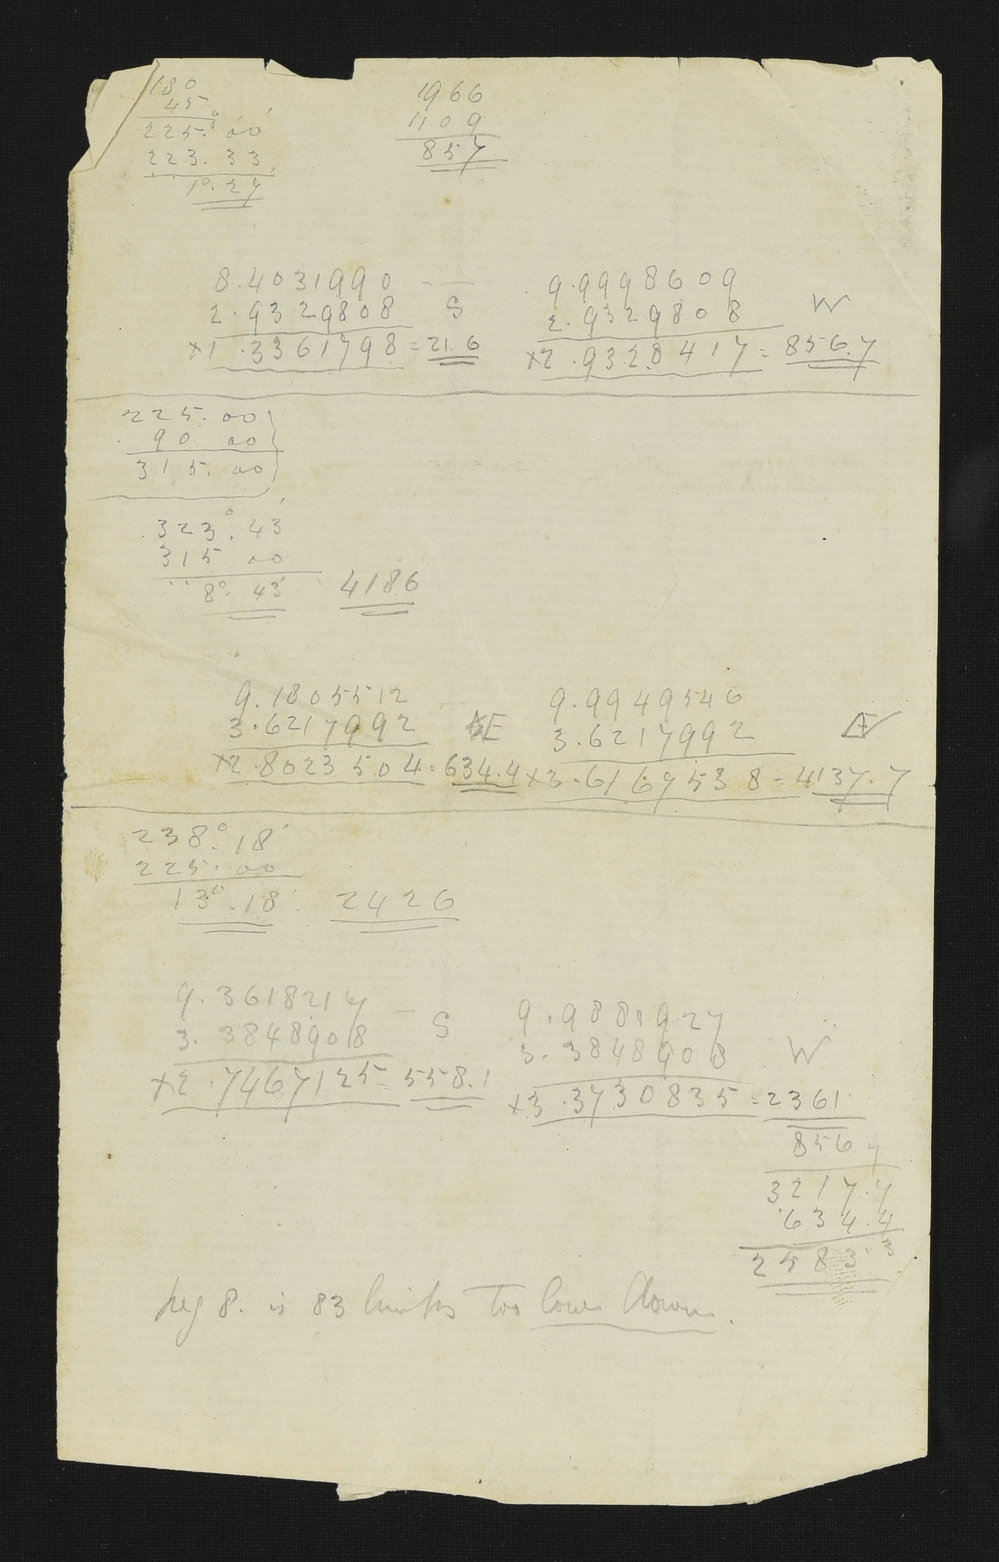 180
45
225.° 00'
223. 33
1°. 27
1966
1109
857
8.4031990 —
2.9329808 S
x1.3361798 = 21.6
9.9998609
2.9329808 W
x2.9328417 = 856.7
225. 00
90 00
315. 00
323°. 43'
315 00
8°. 43'
4186
9.1805512 —
3.6217992 E
x2.8023504 = 634.4
9.9949546
3.6217992
x3.6167538 = 4137.7
238°. 18'
225. 00
13°. 18'
2426
9.3618217 —
3.3848908 S
x2.7467125 = 558.1
9.9881927
3.3848908 W
x3.3730835 = 2361
856.7
3217.7
634.4
2583.3
peg 8. is 83 links too low down.